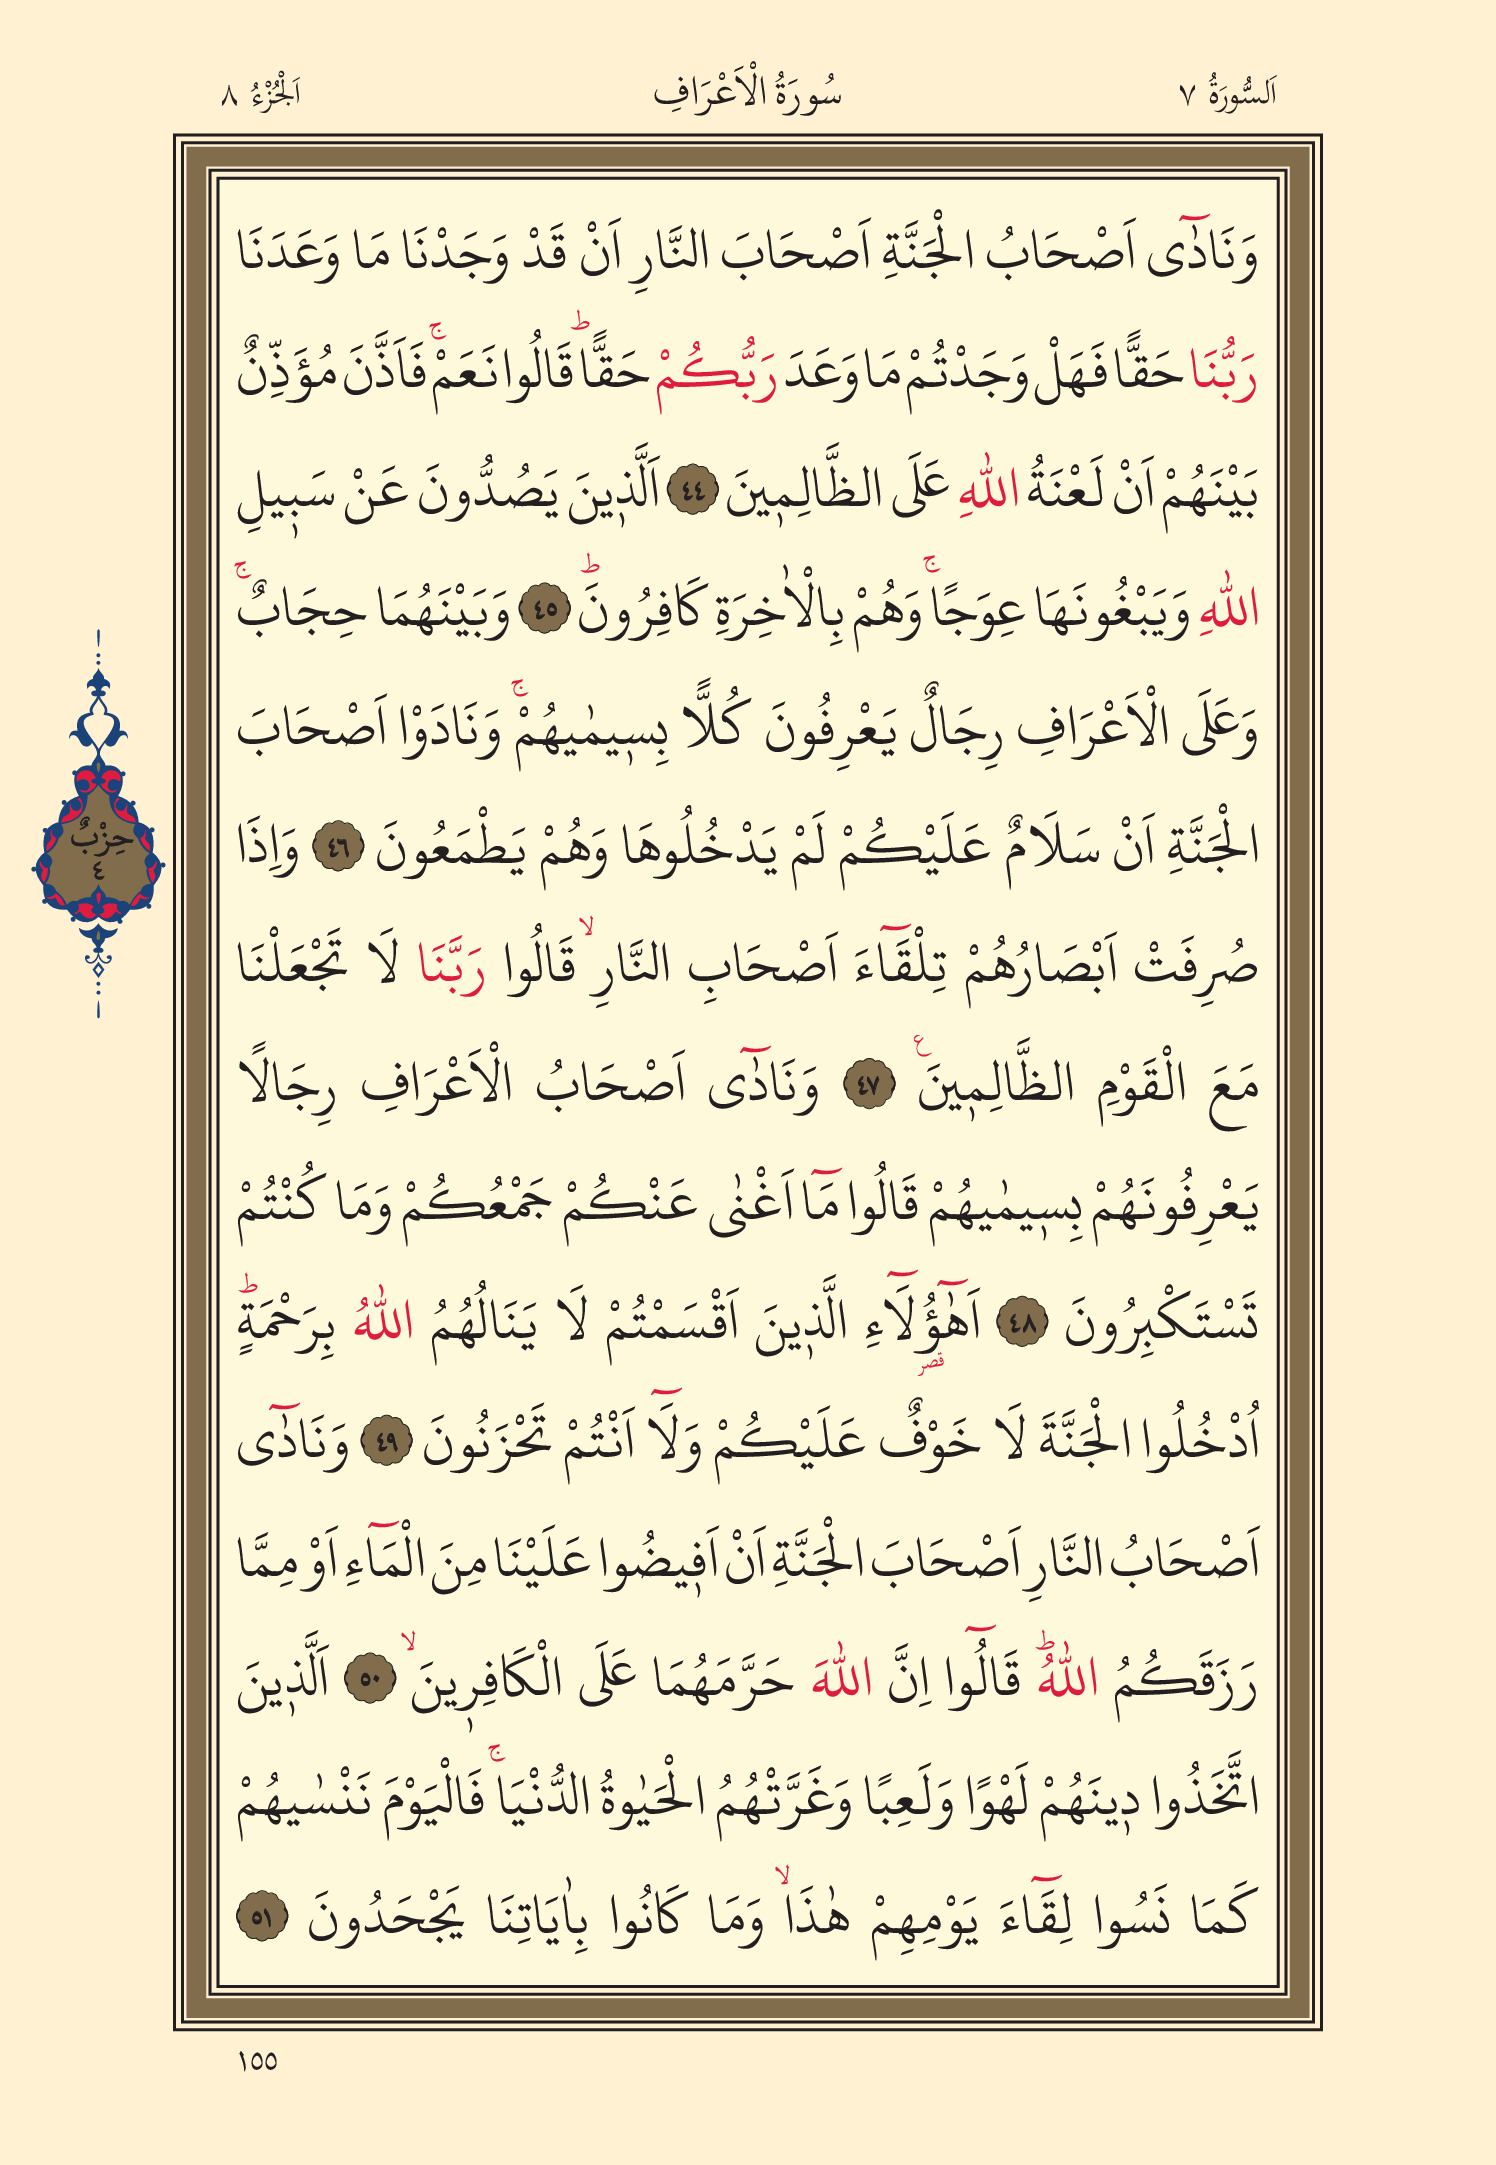 اَلسُّورَةُ ٧ سُورَةُ الْاَعْرَافِ اَلْجُزْءُ ٨
وَنَادٰٓى اَصْحَابُ الْجَنَّةِ اَصْحَابَ النَّارِ اَنْ قَدْ وَجَدْنَا مَا وَعَدَنَا
رَبُّنَا حَقًّا فَهَلْ وَجَدْتُمْ مَا وَعَدَ رَبُّكُمْ حَقًّاۜ قَالُوا نَعَمْۚ فَاَذَّنَ مُؤَذِّنٌ
بَيْنَهُمْ اَنْ لَعْنَةُ اللّٰهِ عَلَى الظَّالِم۪ينَ ٤٤ اَلَّذ۪ينَ يَصُدُّونَ عَنْ سَب۪يلِ
اللّٰهِ وَيَبْغُونَهَا عِوَجًاۚ وَهُمْ بِالْاٰخِرَةِ كَافِرُونَۜ ٤٥ وَبَيْنَهُمَا حِجَابٌۚ
وَعَلَى الْاَعْرَافِ رِجَالٌ يَعْرِفُونَ كُلًّا بِس۪يمٰيهُمْۚ وَنَادَوْا اَصْحَابَ
الْجَنَّةِ اَنْ سَلَامٌ عَلَيْكُمْ لَمْ يَدْخُلُوهَا وَهُمْ يَطْمَعُونَ ٤٦ وَاِذَا
حِزْبٌ
٤
صُرِفَتْ اَبْصَارُهُمْ تِلْقَٓاءَ اَصْحَابِ النَّارِۙ قَالُوا رَبَّنَا لَا تَجْعَلْنَا
مَعَ الْقَوْمِ الظَّالِم۪ينَ۟ ٤٧ وَنَادٰٓى اَصْحَابُ الْاَعْرَافِ رِجَالًا
يَعْرِفُونَهُمْ بِس۪يمٰيهُمْ قَالُوا مَٓا اَغْنٰى عَنْكُمْ جَمْعُكُمْ وَمَا كُنْتُمْ
تَسْتَكْبِرُونَ ٤٨ اَهٰٓؤُ۬لَٓاءِ الَّذ۪ينَ اَقْسَمْتُمْ لَا يَنَالُهُمُ اللّٰهُ بِرَحْمَةٍۜ
قصر
اُدْخُلُوا الْجَنَّةَ لَا خَوْفٌ عَلَيْكُمْ وَلَٓا اَنْتُمْ تَحْزَنُونَ ٤٩ وَنَادٰٓى
اَصْحَابُ النَّارِ اَصْحَابَ الْجَنَّةِ اَنْ اَف۪يضُوا عَلَيْنَا مِنَ الْمَٓاءِ اَوْ مِمَّا
رَزَقَكُمُ اللّٰهُۜ قَالُٓوا اِنَّ اللّٰهَ حَرَّمَهُمَا عَلَى الْكَافِر۪ينَۙ ٥٠ اَلَّذ۪ينَ
اتَّخَذُوا د۪ينَهُمْ لَهْوًا وَلَعِبًا وَغَرَّتْهُمُ الْحَيٰوةُ الدُّنْيَاۚ فَالْيَوْمَ نَنْسٰيهُمْ
كَمَا نَسُوا لِقَٓاءَ يَوْمِهِمْ هٰذَاۙ وَمَا كَانُوا بِاٰيَاتِنَا يَجْحَدُونَ ٥١
١٥٥